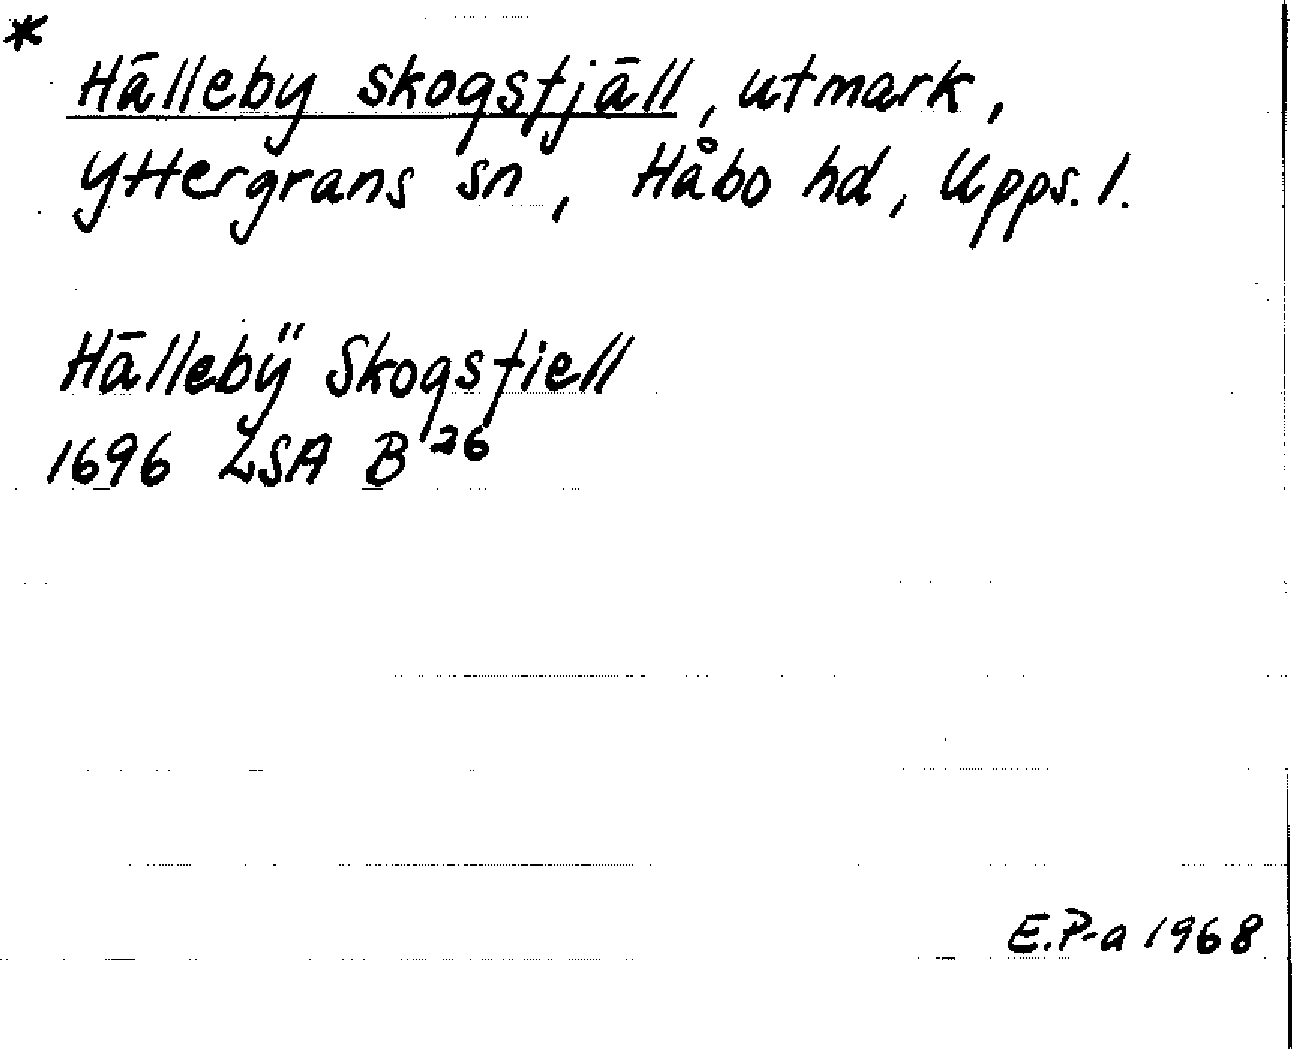 *
Hälleby skogsfjäll, utmark,
Yttergrans sn, Håbo hd, Upps. l.
Hällebÿ Skogsfiell
1696 LSA B 26
E.P-a 1968